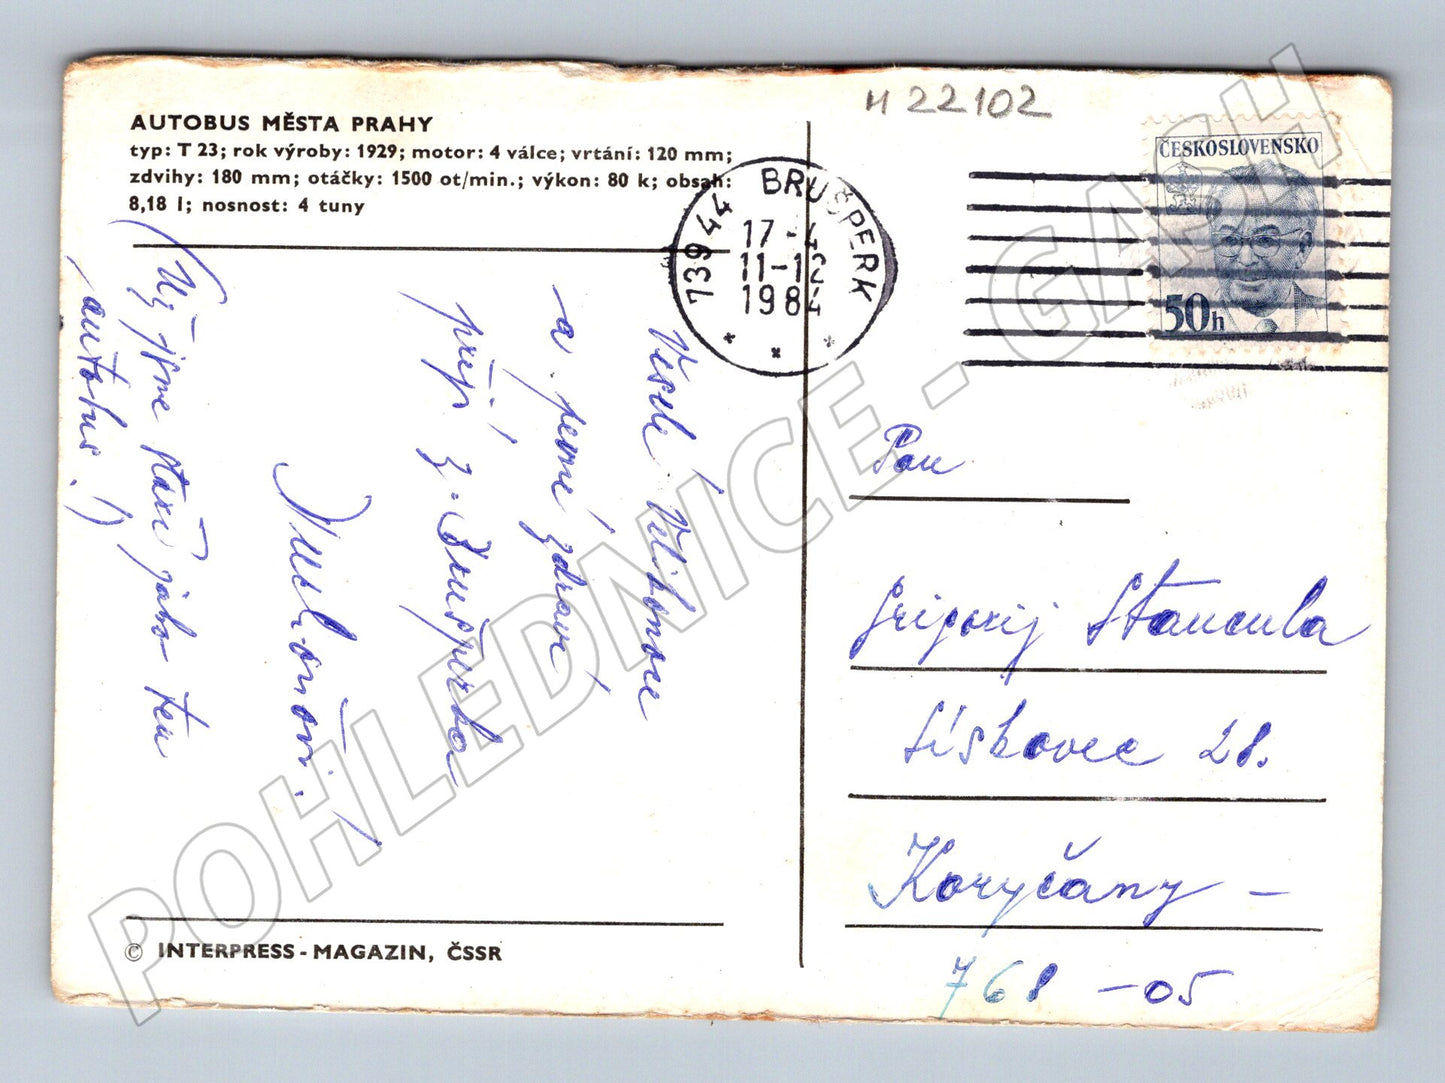 AUTOBUS MĚSTA PRAHY
typ: T 23; rok výroby: 1929; motor: 4 válce; vrtání: 120 mm;
zdvihy: 180 mm; otáčky: 1500 ot/min.; výkon: 80 k; obsah:
8,18 l; nosnost: 4 tuny
Veselé Velikonoce
a pevné zdraví
přejí z Brušperka
(Už jsme staří jako ten
autobus!)
© INTERPRESS - MAGAZIN, ČSSR
H 22102
739 44 BRUŠPERK
17 -4
11-12
1984
ČESKOSLOVENSKO
50h
Pan
Grigorij Stancula
Lískovec 28.
Koryčany –
768 – 05
POHLEDNICE - GASH